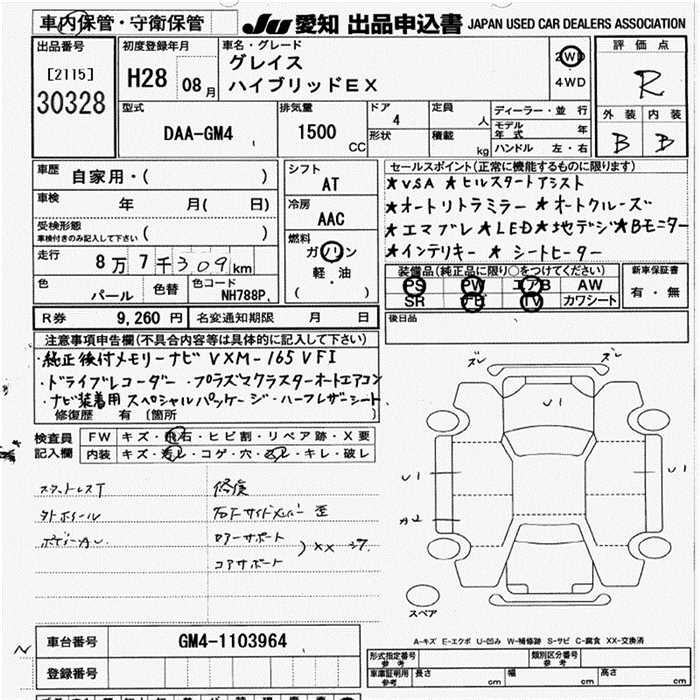 車内保管・守衛保管
JU 愛知 出品申込書 JAPAN USED CAR DEALERS ASSOCIATION
出品番号
[2115]
30328
初度登録年月
H28 08月
車名・グレード
グレイス
ハイブリッドEX
2WD
4WD
評価点
R
外装 内装
B B
型式
DAA-GM4
排気量
1500 CC
ドア
4
定員
人
形状
積載
kg
ディーラー・並行
モデル年式
ハンドル 左・右
車歴
自家用・( )
車検 年 月( 日)
受検形態
車検付きのみ記入して下さい ( )
走行 8万7千309km
色 パール 色替 色コード NH788P
R券 9,260円 名変通知期限 月 日
シフト
AT
冷房
AAC
燃料
ガソリン
軽・油
( )
セールスポイント(正常に機能するものに限ります)
★VSA ★ヒルスタートアシスト
★オートリトラミラー ★オートクルーズ
★エマブレ ★LED ★地デジ ★Bモニター
★インテリキー ★シートヒーター
装備品(純正品に限り○をつけてください)
PS PW エアB AW
SR ナビ TV カワシート
新車保証書
有・無
後日品
注意事項申告欄(不具合内容等は具体的に記入して下さい)
・純正後付メモリーナビ VXM-165VFI
・ドライブレコーダー ・プラズマクラスターオートエアコン
・ナビ装着用スペシャルパッケージ・ハーフレザーシート
修復歴 有〔箇所 〕
検査員記入欄
FW キズ・飛石・ヒビ割・リペア跡・X要
内装 キズ・汚レ・コゲ・穴・スレ・キレ・破レ
修復
コアサポート
ズレ ズレ
U1
U1 U1
A2
スペア
A-キズ E-エクボ U-凹み W-補修跡 S-サビ C-腐食 XX-交換済
車台番号 GM4-1103964
登録番号
形式指定番号
参考
類別区分番号
参考
車庫証明用
参考
長さ cm 幅 cm 高さ cm